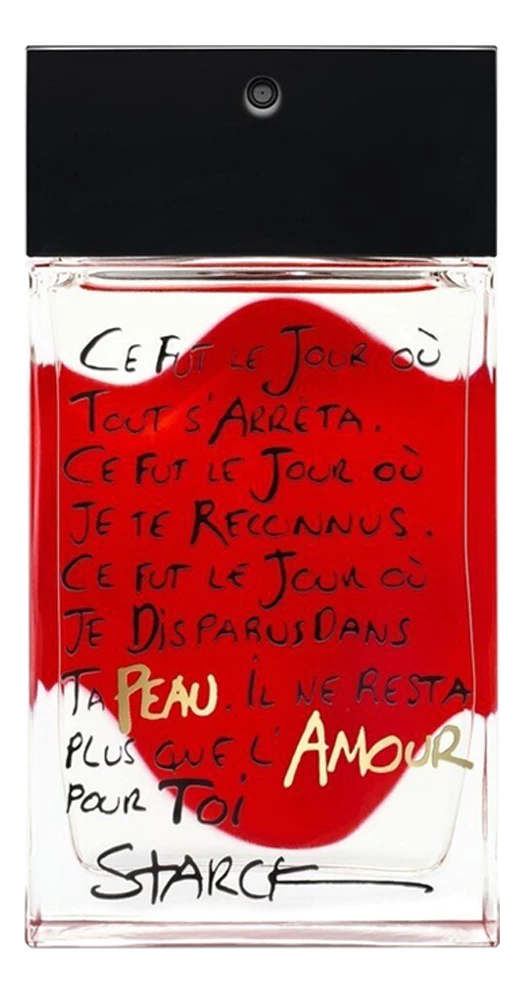 Ce Fut le Jour où
Tout s'Arrêta.
Ce fut le Jour où
Je te Reconnus.
Ce fut le Jour où
Je Disparus Dans
Ta Peau. Il ne Resta
plus que l'Amour
pour Toi
Starck